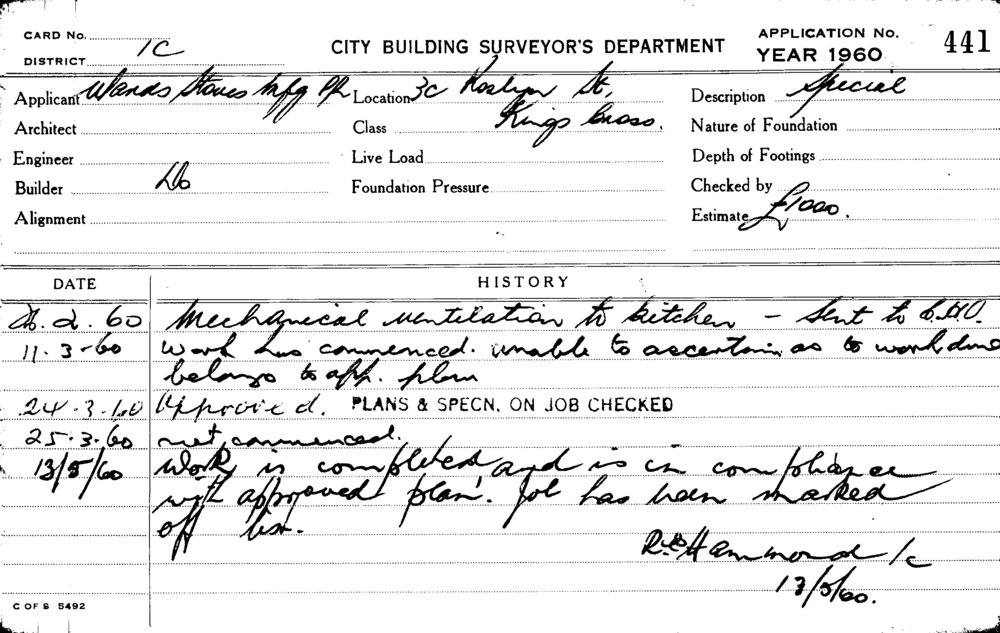 CARD No.
DISTRICT 1C
CITY BUILDING SURVEYOR'S DEPARTMENT
APPLICATION No. 441
YEAR 1960
Applicant Wands Stoves Mfg P/L Location 3c Roslyn St, Description Special
Architect Class Kings Cross. Nature of Foundation
Engineer Live Load Depth of Footings
Builder Do Foundation Pressure Checked by
Alignment Estimate £1000.
DATE HISTORY
2. 60 Mechanical ventilation to kitchen - Sent to C.H.O.
11. 3-60 Work has commenced. unable to ascertain as to work done
belongs to app. plan
24. 3. 60 Approved. PLANS & SPECN. ON JOB CHECKED
25. 3. 60 not commenced.
13/5/60 Work is completed and is in compliance
with approved plan. Job has been marked
off list.
Hammond 1c
13/5/60.
C OF S 5492